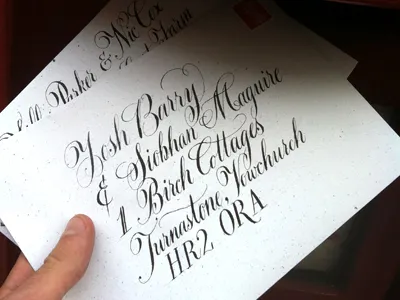 & Nic Cox
Josh Barry
& Siobhan Maguire
1 Birch Cottages
Turnastone, Vowchurch
HR2 0RA